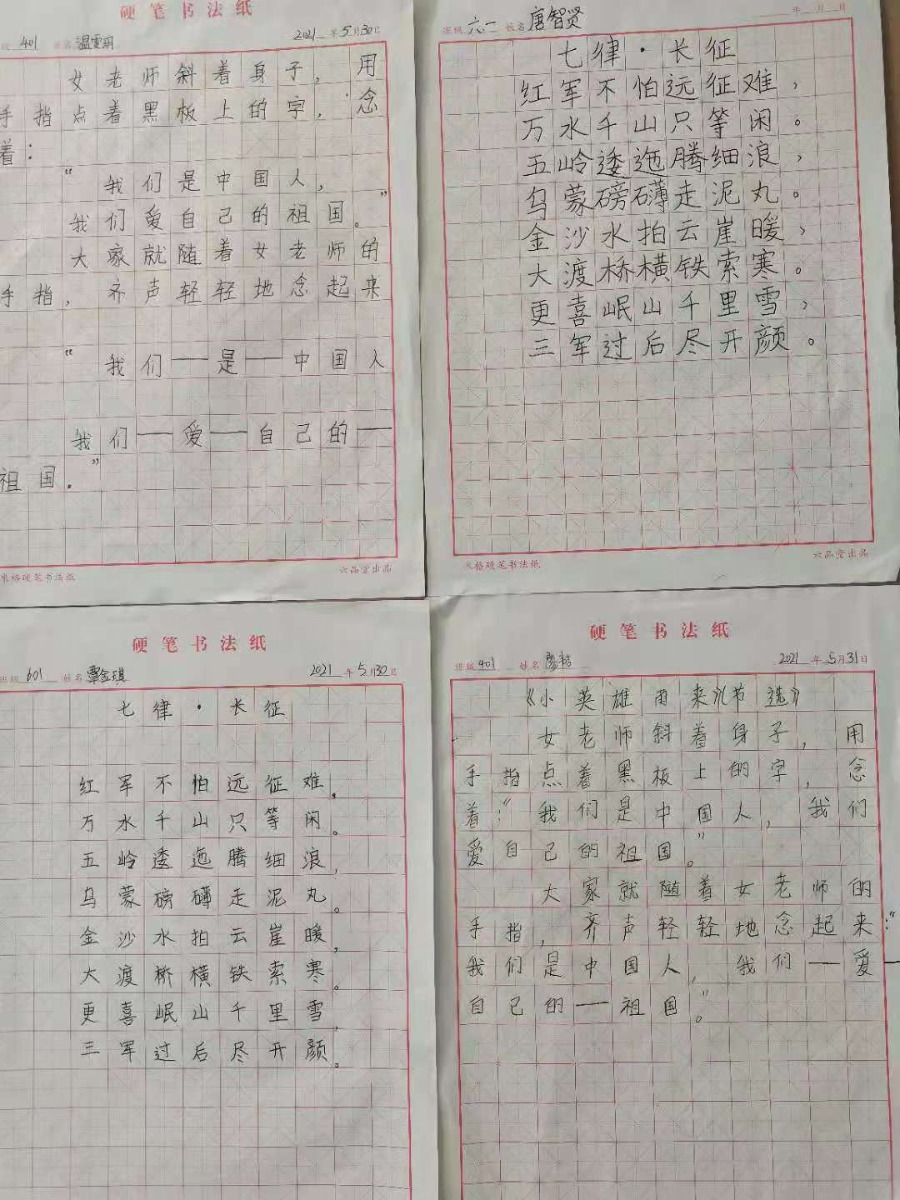 硬笔书法纸
401 姓名 2021年5月30日
女老师斜着身子，用
手指点着黑板上的字，念
着：
“我们是中国人，
我们爱自己的祖国。”
大家就随着女老师的
手指，齐声轻轻地念起来
“我们——是——中国人
我们——爱——自己的——
祖国．”
米格硬笔书法纸 六品堂出品
班级 六二 姓名 唐智贤 年 月 日
七律·长征
红军不怕远征难，
万水千山只等闲。
五岭逶迤腾细浪，
乌蒙磅礴走泥丸。
金沙水拍云崖暖，
大渡桥横铁索寒。
更喜岷山千里雪，
三军过后尽开颜。
米格硬笔书法纸 六品堂出品
硬笔书法纸
班级 601 姓名 覃金琪 2021年5月30日
七律·长征
红军不怕远征难，
万水千山只等闲。
五岭逶迤腾细浪，
乌蒙磅礴走泥丸。
金沙水拍云崖暖，
大渡桥横铁索寒。
更喜岷山千里雪，
三军过后尽开颜。
硬笔书法纸
班级 401 姓名 2021年5月31日
《小英雄雨来》（节选）
女老师斜着身子，用
手指点着黑板上的字，念
着：“我们是中国人，我们
爱自己的祖国。”
大家就随着女老师的
手指，齐声轻轻地念起来：“
我们是中国人，我们——爱——
自己的——祖国。”